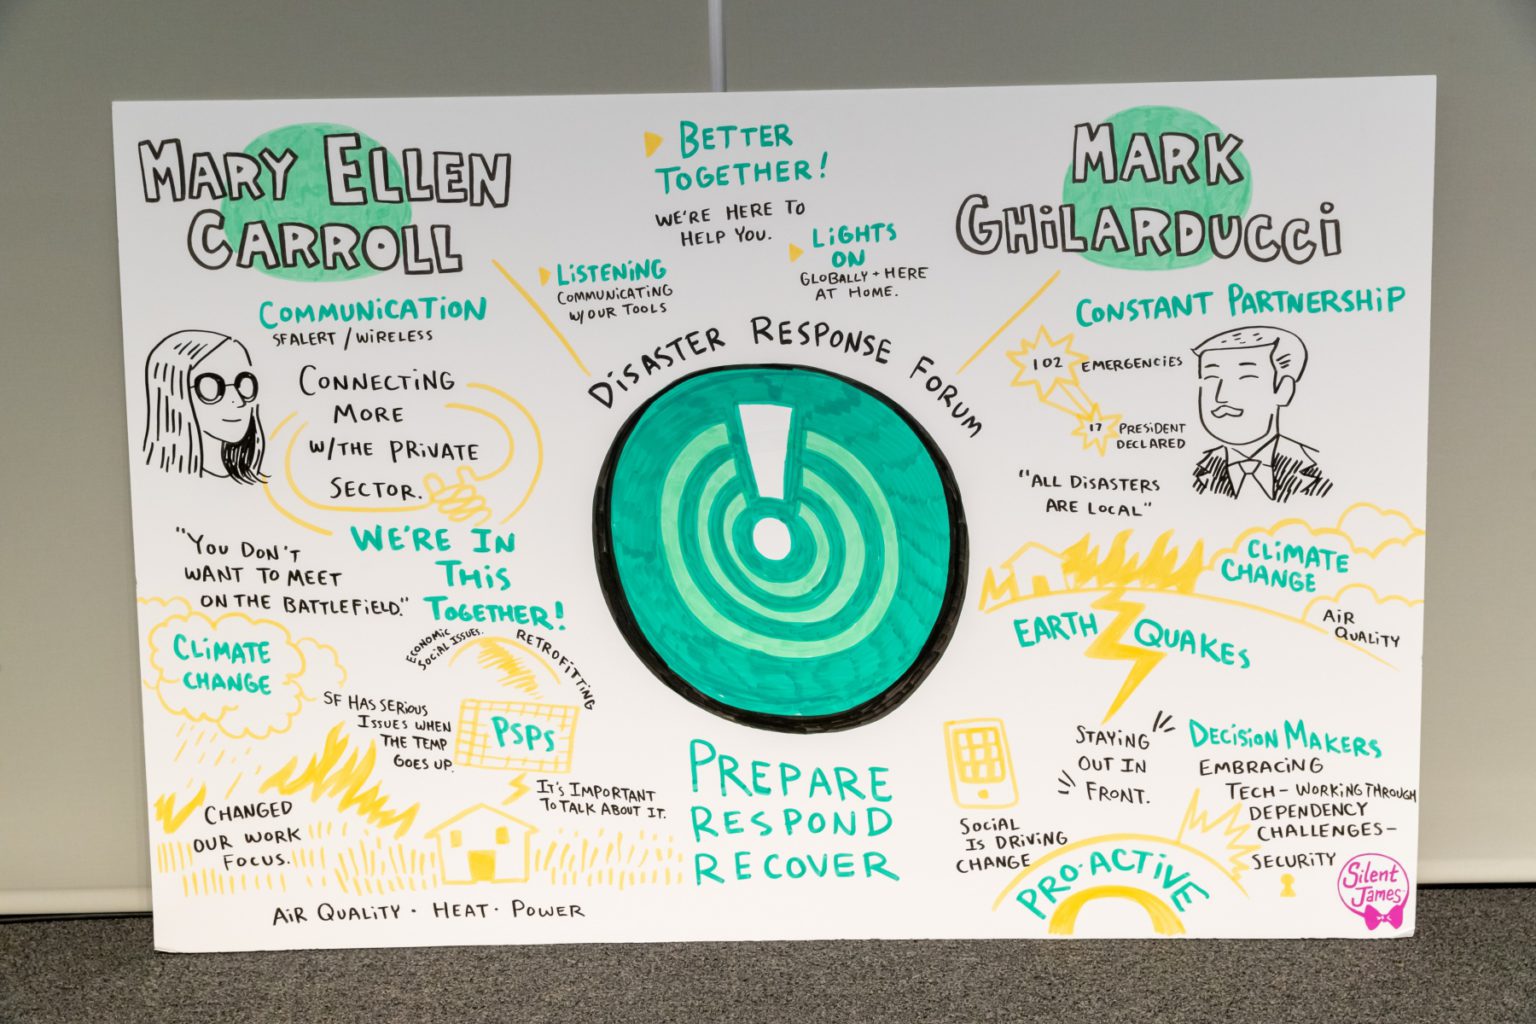 MARY ELLEN
CARROLL
COMMUNICATION
SFALERT / WIRELESS
CONNECTING
MORE
W/THE PRIVATE
SECTOR.
"YOU DON'T
WANT TO MEET
ON THE BATTLEFIELD."
WE'RE IN
THIS
TOGETHER!
CLIMATE
CHANGE
ECONOMIC
SOCIAL ISSUES.
RETROFITTING
SF HAS SERIOUS
ISSUES WHEN
THE TEMP
GOES UP.
PSPS
IT'S IMPORTANT
TO TALK ABOUT IT.
CHANGED
OUR WORK
FOCUS.
AIR QUALITY · HEAT · POWER
BETTER
TOGETHER!
WE'RE HERE TO
HELP YOU.
LISTENING
COMMUNICATING
W/OUR TOOLS
LIGHTS
ON
GLOBALLY + HERE
AT HOME.
DISASTER RESPONSE FORUM
PREPARE
RESPOND
RECOVER
MARK
GHILARDUCCI
CONSTANT PARTNERSHIP
102 EMERGENCIES
17 PRESIDENT
DECLARED
"ALL DISASTERS
ARE LOCAL"
CLIMATE
CHANGE
AIR
QUALITY
EARTH QUAKES
STAYING
OUT IN
FRONT.
SOCIAL
IS DRIVING
CHANGE
DECISION MAKERS
EMBRACING
TECH - WORKING THROUGH
DEPENDENCY
CHALLENGES -
SECURITY
PRO-ACTIVE
Silent
James